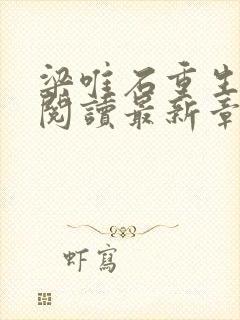 梁唯石重生
閱讀最新章
虾寫